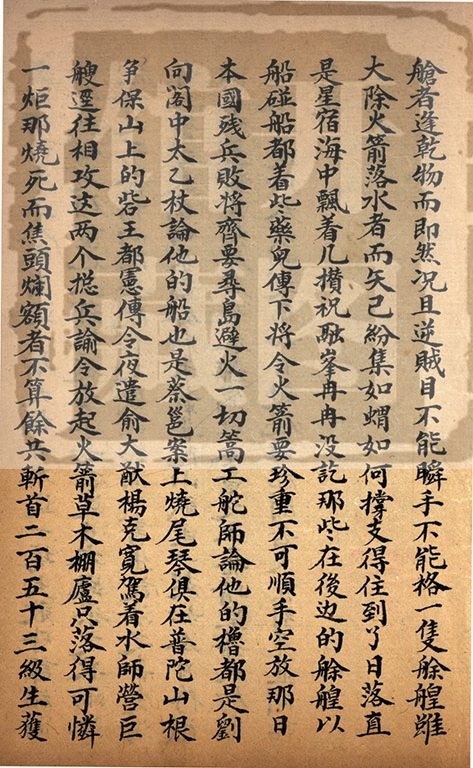 艙者逢乾物而即然况且逆賊目不能瞬手不能格一隻艅艎雖
大除火箭落水者而矢已紛集如蝟如何撐支得住到了日落直
是星宿海中飄着几攢祝融峯冉冉没訖那些在後边的艅艎以
船碰船都着些藥兒傳下将令火箭要珍重不可順手空放那日
本國残兵敗将齊要尋島避火一切篙工舵師論他的櫓都是劉
向阁中太乙杖論他的船也是蔡邕案上燒尾琴俱在普陀山根
争保山上的砦王都憲傳令夜遣俞大猷楊克寬駕着水師營巨
艘逕往相攻这两个揔兵諭令放起火箭草木棚廬只落得可憐
一炬那燒死而焦頭爛額者不算餘共斬首二百五十三級生獲